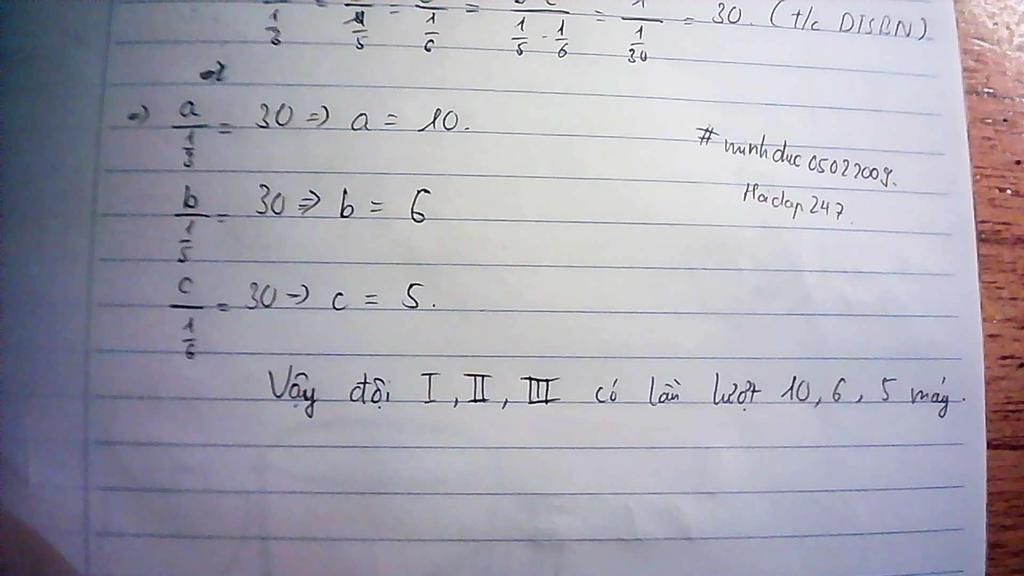 1/3 1/5 1/6 = 1/5 - 1/6 = 1/(1/30) = 30. (t/c DTSBN)
=> a/(1/3) = 30 => a = 10.
#minhduc05022009.
b/(1/5) = 30 => b = 6
Hoidap247.
c/(1/6) = 30 -> c = 5.
Vậy đội I, II, III có lần lượt 10, 6, 5 máy.